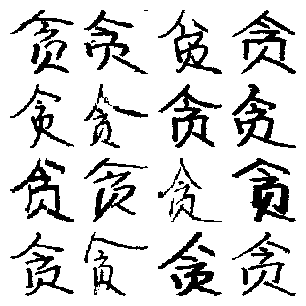 贪贪贪贪
贪贪贪贪
贪贪贪贪
贪贪贪贪